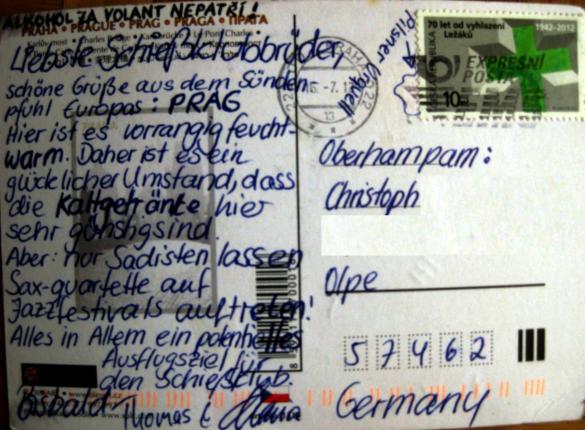 ALKOHOL ZA VOLANT NEPATŘÍ!
PRAHA • PRAGUE • PRAG • PRAGA • ПРАГА
Liebste Schießklubbrüder,
schöne Grüße aus dem Sünden-
pfuhl Europas: PRAG
Hier ist es vorrangig feucht-
warm. Daher ist es ein
glücklicher Umstand, dass
die Kaltgetränke hier
sehr günstig sind.
Aber: nur Sadisten lassen
Sax-quartette auf
Jazzfestivals auftreten!
Alles in Allem ein potentielles
Ausflugsziel für
den Schießklub.
Thomas
Pilsner Urquell
70 let od vyhlazení
Ležáků
1942-2012
EXPRESNÍ
POŠTA
10
Oberhampam:
Christoph
Olpe
57462
Germany